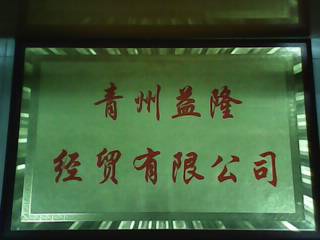 青州益隆
经贸有限公司